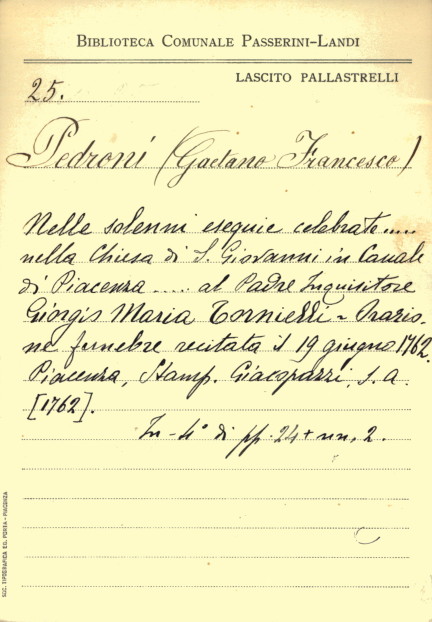 BIBLIOTECA COMUNALE PASSERINI-LANDI
LASCITO PALLASTRELLI
25.
Pedroni (Gaetano Francesco)
Nelle solenni esequie celebrate.....
nella Chiesa di S. Giovanni in Canale
di Piacenza ..... al Padre Inquisitore
Giorgio Maria Tornielli - Orazio-
ne funebre recitata il 19 giugno 1762.
Piacenza, Stamp. Giacopazzi, s. a.
[1762].
In-4° di pp. 24 + nn. 2.
SOC. TIPOGRAFICA ED. PORTA - PIACENZA